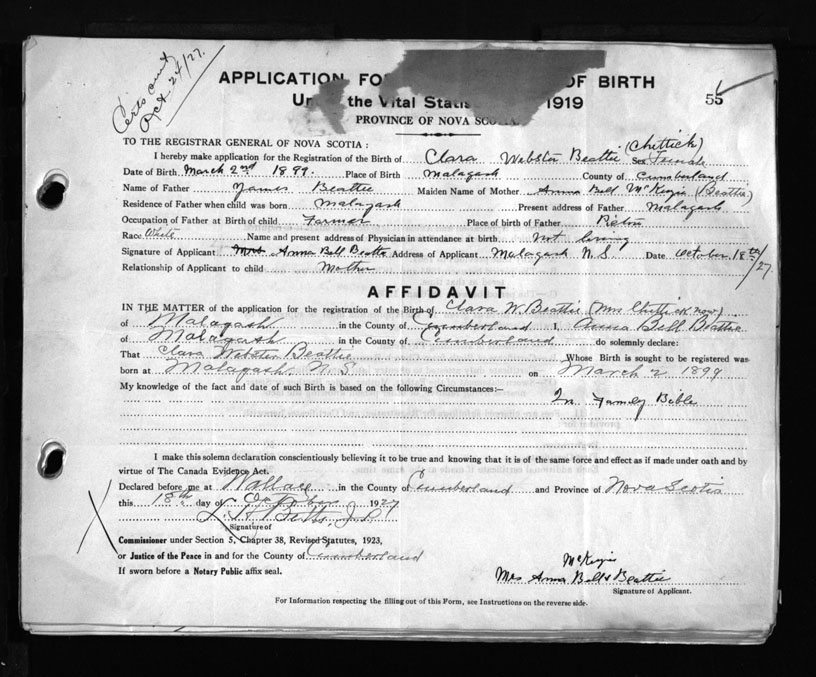 Certs out
Oct 24/27.
APPLICATION FO OF BIRTH
55
Un the Vital Statis 1919
PROVINCE OF NOVA SCOTIA
TO THE REGISTRAR GENERAL OF NOVA SCOTIA :
(Chittick)
I hereby make application for the Registration of the Birth of Clara Webster Beattie Sex Female
Date of Birth March 2nd 1899. Place of Birth Malagash County of Cumberland
Name of Father James Beattie Maiden Name of Mother Anna Bell McKenzie (Beattie)
Residence of Father when child was born Malagash Present address of Father Malagash
Occupation of Father at Birth of child Farmer Place of birth of Father Pictou
Race White Name and present address of Physician in attendance at birth Not living
Signature of Applicant Mrs Anna Bell Beattie Address of Applicant Malagash N.S. Date October 18th/27.
Relationship of Applicant to child Mother
AFFIDAVIT
IN THE MATTER of the application for the registration of the Birth of Clara W. Beattie (Mrs Chittick now)
of Malagash in the County of Cumberland I, Anna Bell Beattie
of Malagash in the County of Cumberland do solemnly declare:
That Clara Webster Beattie Whose Birth is sought to be registered was
born at Malagash, N.S. on March 2 1899
My knowledge of the fact and date of such Birth is based on the following Circumstances:—
In Family Bible
I make this solemn declaration conscientiously believing it to be true and knowing that it is of the same force and effect as if made under oath and by
virtue of The Canada Evidence Act.
Declared before me at Wallace in the County of Cumberland and Province of Nova Scotia
this 18th day of October 1927
Betts J.P.
Signature of
Commissioner under Section 5, Chapter 38, Revised Statutes, 1923,
or Justice of the Peace in and for the County of Cumberland
If sworn before a Notary Public affix seal.
McKenzie
Mrs Anna Bell Beattie
Signature of Applicant.
For Information respecting the filling out of this Form, see Instructions on the reverse side.